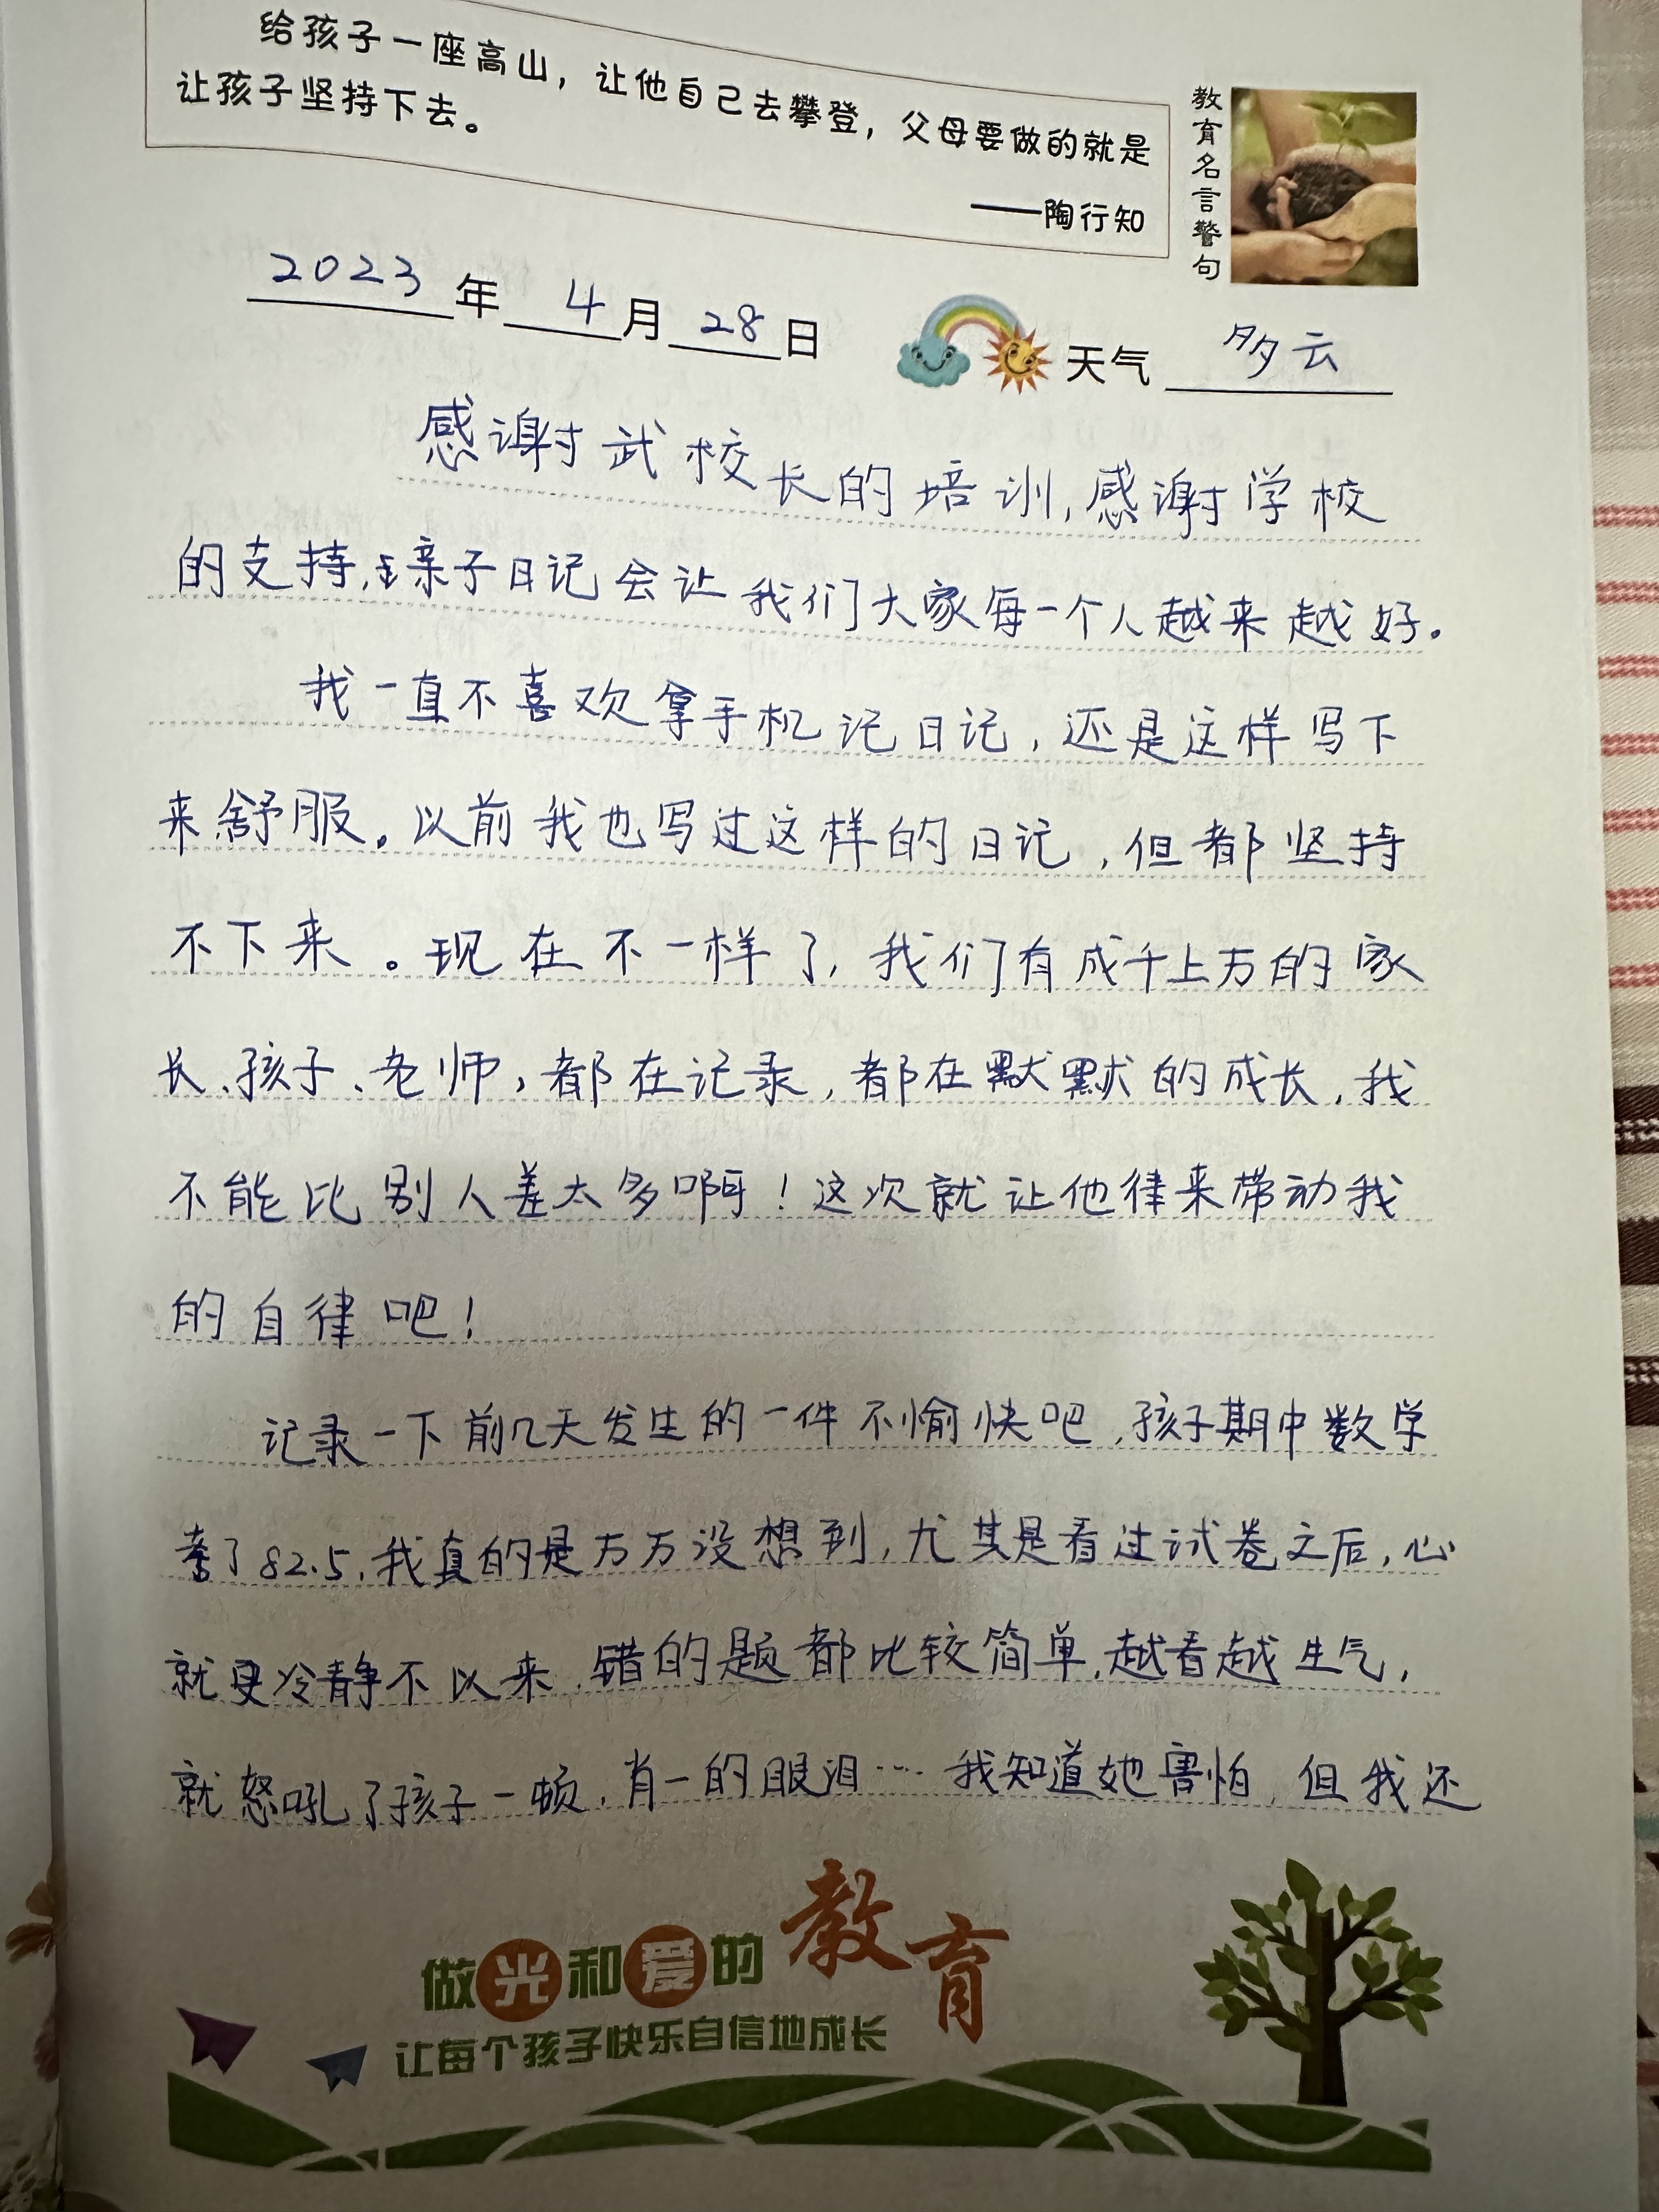 给孩子一座高山，让他自己去攀登，父母要做的就是
让孩子坚持下去。
——陶行知
教育名言警句
2023年4月28日 天气 多云
感谢武校长的培训,感谢学校
的支持,亲子日记会让我们大家每一个人越来越好.
我一直不喜欢拿手机记日记,还是这样写下
来舒服。以前我也写过这样的日记,但都坚持
不下来。现在不一样了,我们有成千上万的家
长、孩子、老师,都在记录,都在默默的成长,我
不能比别人差太多啊!这次就让他律来带动我
的自律吧!
记录一下前几天发生的一件不愉快吧,孩子期中数学
考了82.5,我真的是万万没想到,尤其是看过试卷之后,心
就更冷静不以来,错的题都比较简单,越看越生气,
就怒吼了孩子一顿,肖一的眼泪……我知道她害怕,但我还
做光和爱的教育
让每个孩子快乐自信地成长